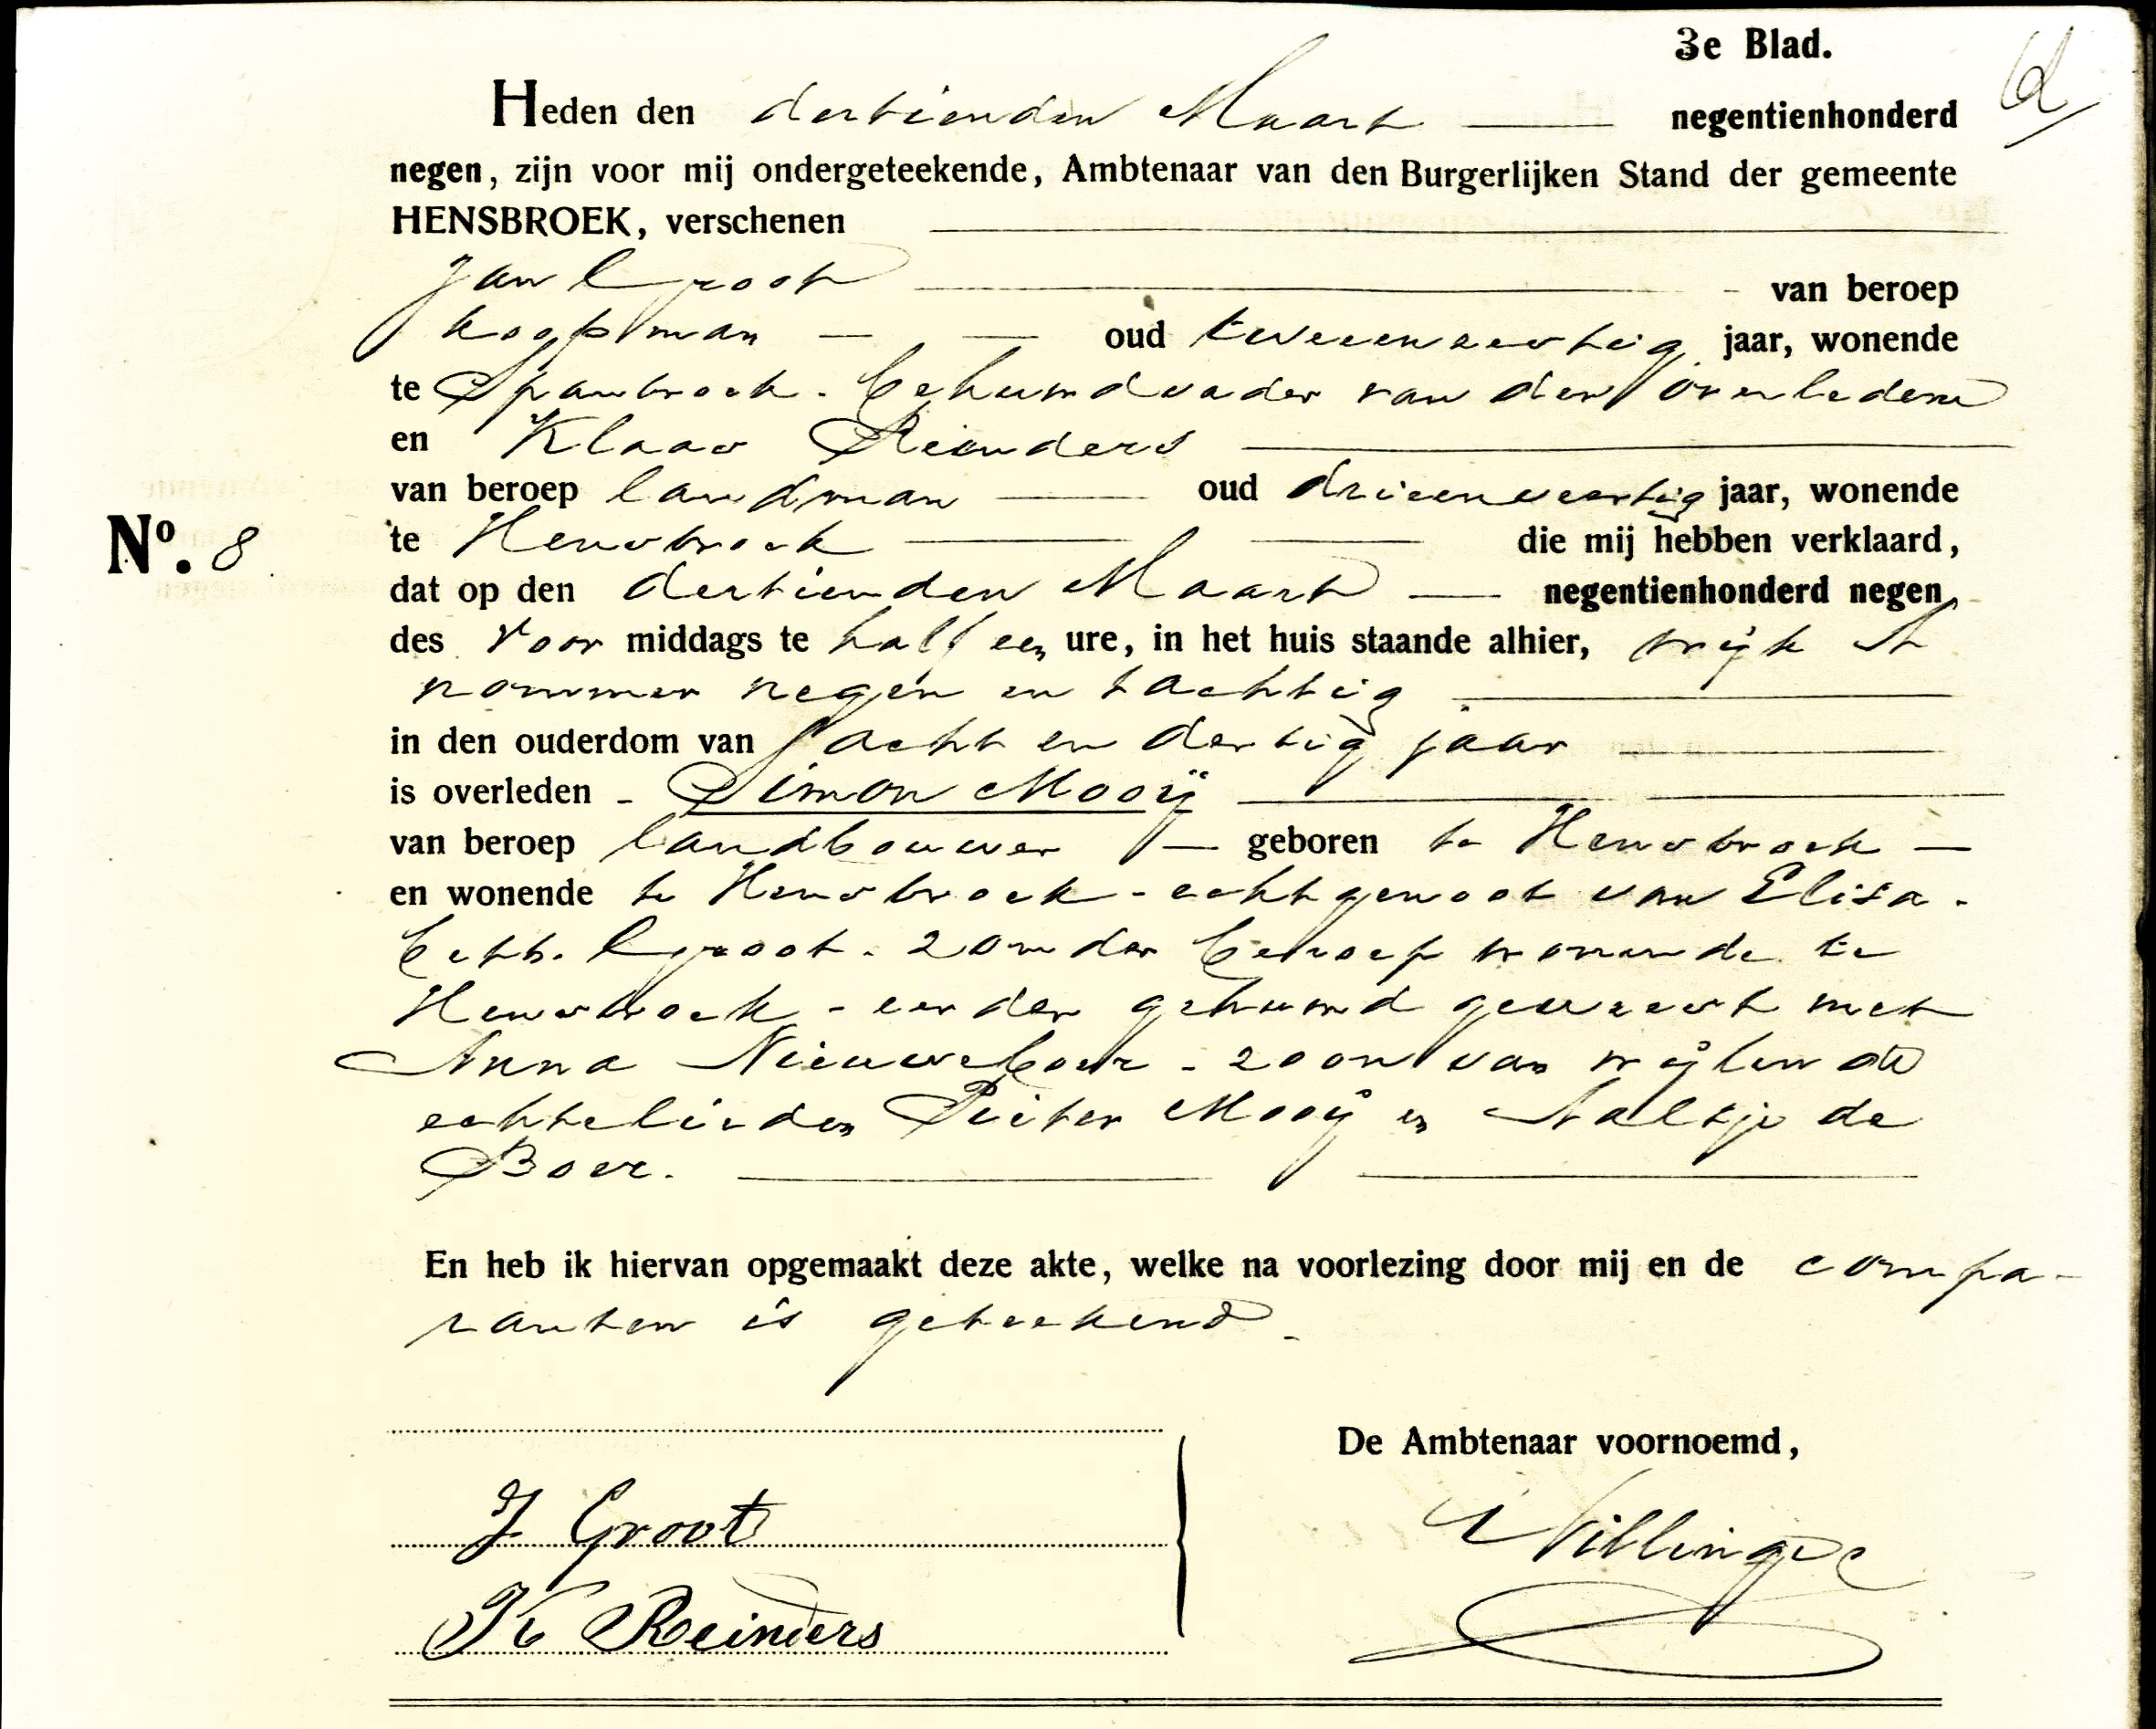 3e Blad.
Heden den dertienden Maart negentienhonderd
negen, zijn voor mij ondergeteekende, Ambtenaar van den Burgerlijken Stand der gemeente
HENSBROEK, verschenen
Jan Groot van beroep
koopman oud tweeenveertig jaar, wonende
te Spanbroek. behuwdvader van den overledene
en Klaas Reinders
van beroep landman oud drieenveertig jaar, wonende
No. 8 te Hensbroek die mij hebben verklaard,
dat op den dertienden Maart negentienhonderd negen,
des voor middags te half een ure, in het huis staande alhier, wijk A
nommer negen en tachtig
in den ouderdom van acht en dertig jaar
is overleden - Simon Mooij
van beroep landbouwer geboren te Hensbroek
en wonende te Hensbroek - echtgenoot van Elisa-
beth Groot. zonder beroep wonende te
Hensbroek - eerder gehuwd geweest met
Anna Nieuweboer - zoon van wijlen de
echtelieden Pieter Mooij en Aaltje de
Boer.
En heb ik hiervan opgemaakt deze akte, welke na voorlezing door mij en de compa-
ranten is geteekend.
De Ambtenaar voornoemd,
J Groot
K Reinders